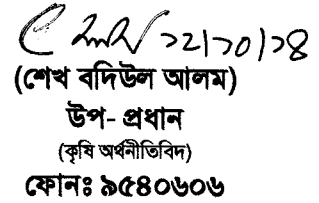 ১২/১০/১৪
(শেখ বদিউল আলম)
উপ- প্রধান
(কৃষি অর্থনীতিবিদ)
ফোনঃ ৯৫৪০৬০৬